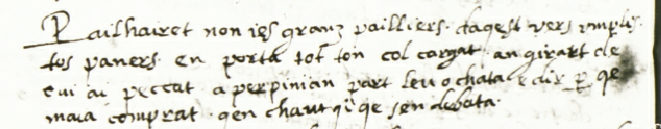 Pailhairet non ies granz pailliers. daqest vers umplis.
tos paners. en porta tot ton col cargat. an girart de
cui ai peccat a perpinian part leuochata e dir per qe
maia comprat. qen chant qi qe sen debata.